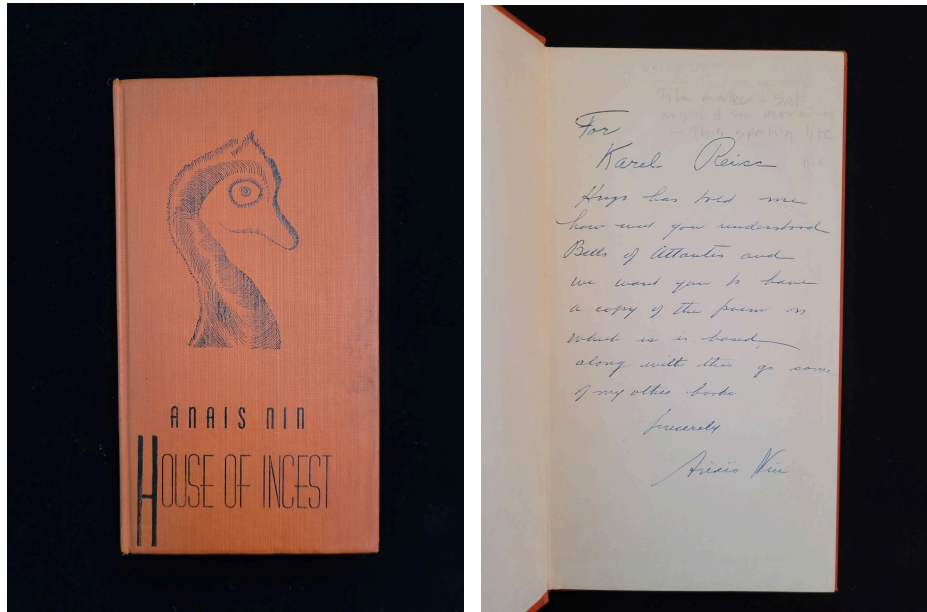 ANAIS NIN
HOUSE OF INCEST
Film maker – Sat
night & Sun morning
– This sporting life
For
Karel Reisz
Hugo has told me
how well you understood
Bells of Atlantis and
we want you to have
a copy of the poem on
which it is based,
along with this go some
of my other books
Sincerely
Anais Nin